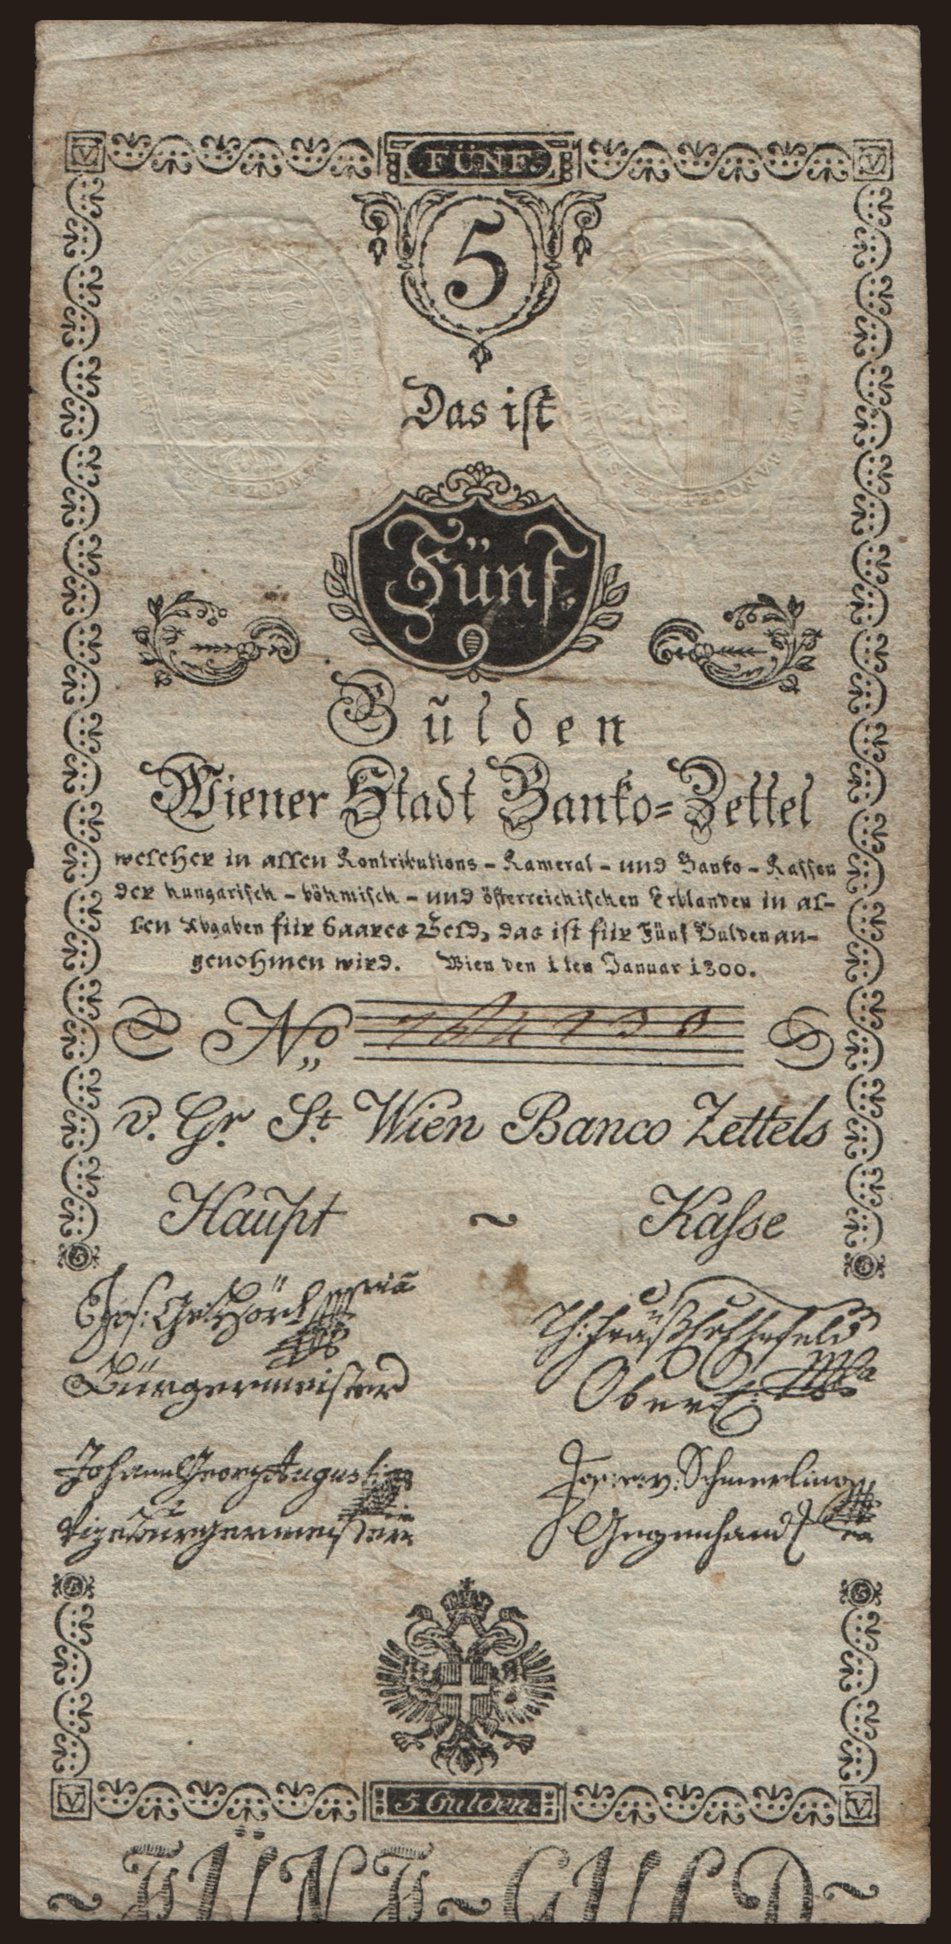 V FÜNF V
5
Das ist
Fünf
Gulden
Wiener Stadt Banko=Zettel
welcher in allen Kontributions - Kameral - und Banko - Kassen
der hungarisch - böhmisch - und österreichischen Erblanden in al-
len Abgaben für baares Geld, das ist für Fünf Gulden an-
genohmen wird. Wien den 1ten Januar 1800.
No
v. Gr. St. Wien Banco Zettels
Haupt ~ Kasse
Jos: Geo: Hörl
Bürgermeister Ober
Johann Georg Augusti Jos: e: v: Schmerling
Vizebürgermeister Gegenhandl
V 5 Gulden. V
~ FÜNF ~ GULD ~